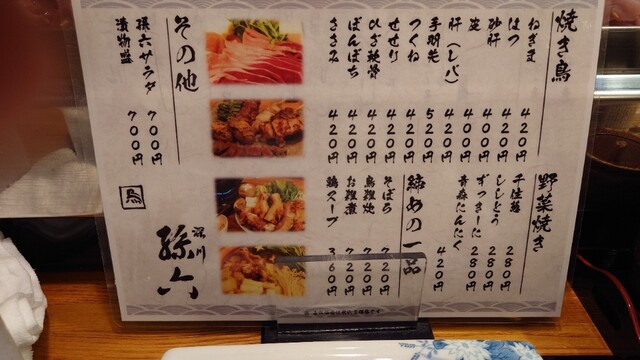 焼き鳥
ねぎま 420円
はつ 420円
砂肝 400円
皮 400円
肝(レバ) 420円
手羽先 520円
つくね 420円
せせり 420円
ひざ軟骨 420円
ぼんぼち 420円
ささみ 420円
野菜焼き
千住葱 280円
ししとう 280円
ずっきーに 280円
青森にんにく 420円
締めの一品
そぼろ 720円
鳥雑炊 720円
お雑煮 720円
鶏スープ 360円
その他
孫六サラダ 700円
漬物盛 700円
鳥
深川
孫六